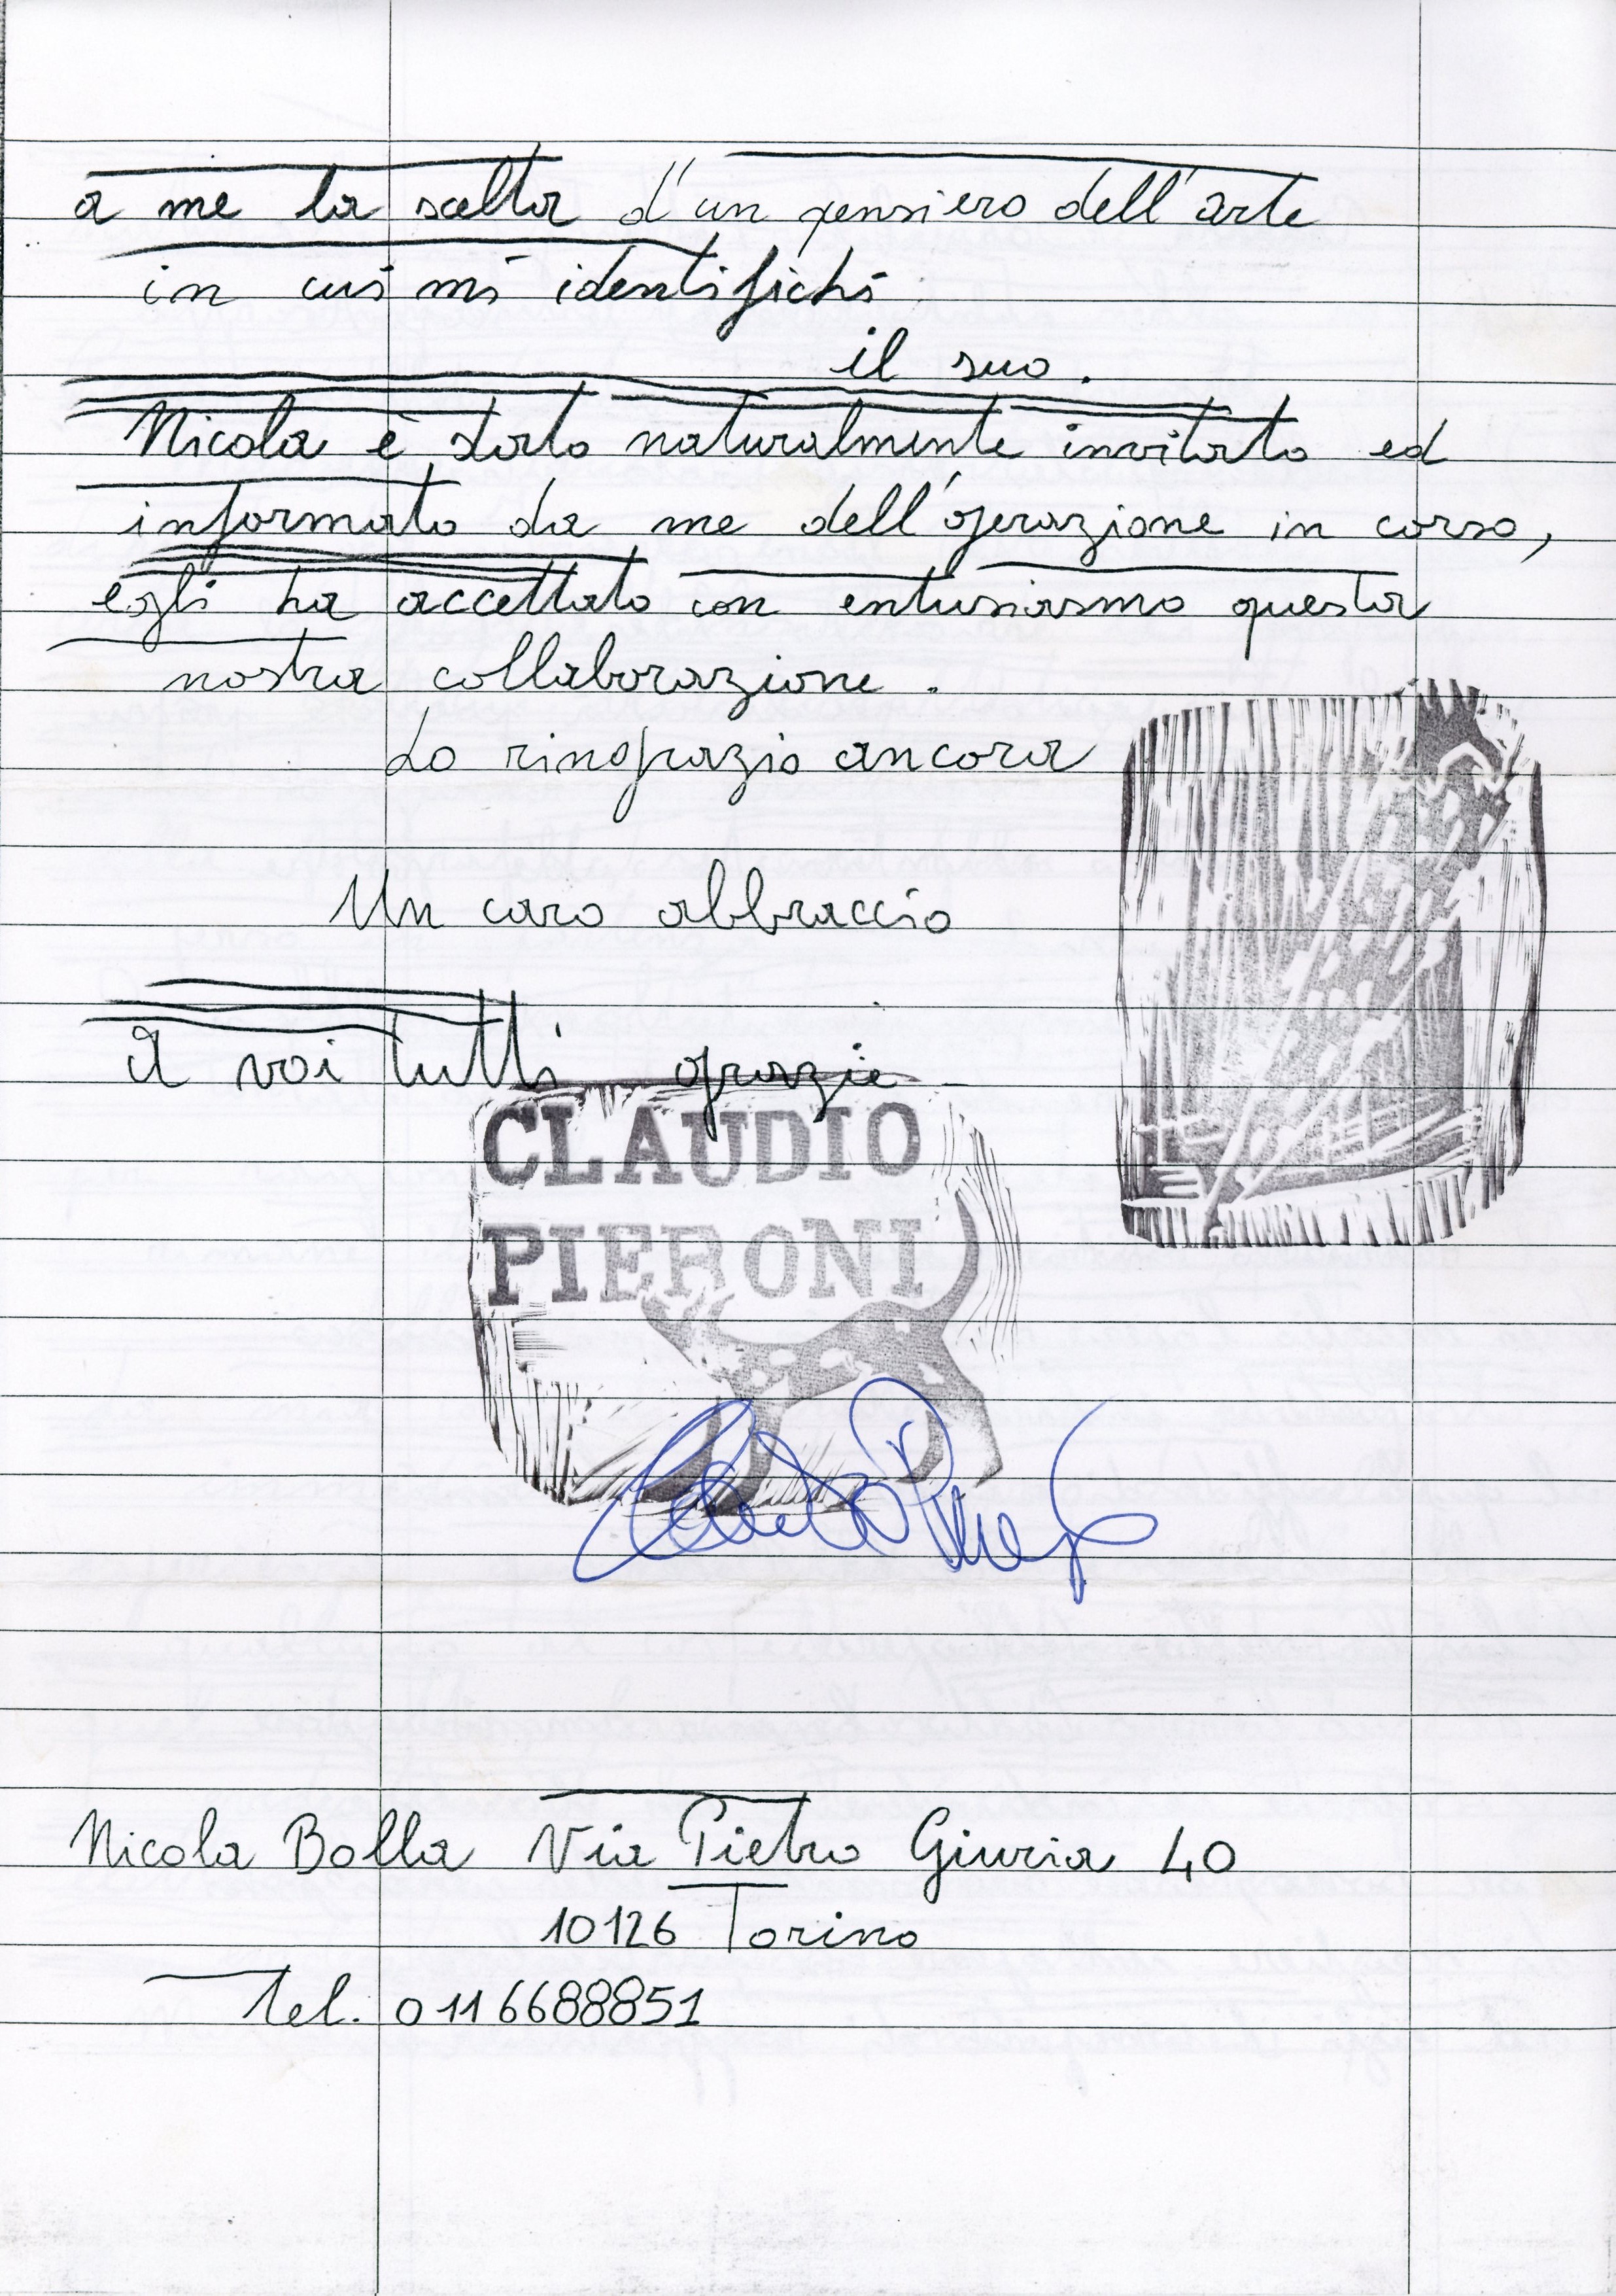 a me la scelta d'un pensiero dell'arte
in cui mi identifichi
il suo.
Nicola è stato naturalmente invitato ed
informato da me dell'operazione in corso,
egli ha accettato con entusiasmo questa
nostra collaborazione.
Lo ringrazio ancora
Un caro abbraccio
A voi tutti grazie
CLAUDIO
PIERONI
Nicola Bolla Via Pietro Giuria 40
10126 Torino
Tel. 0116688851